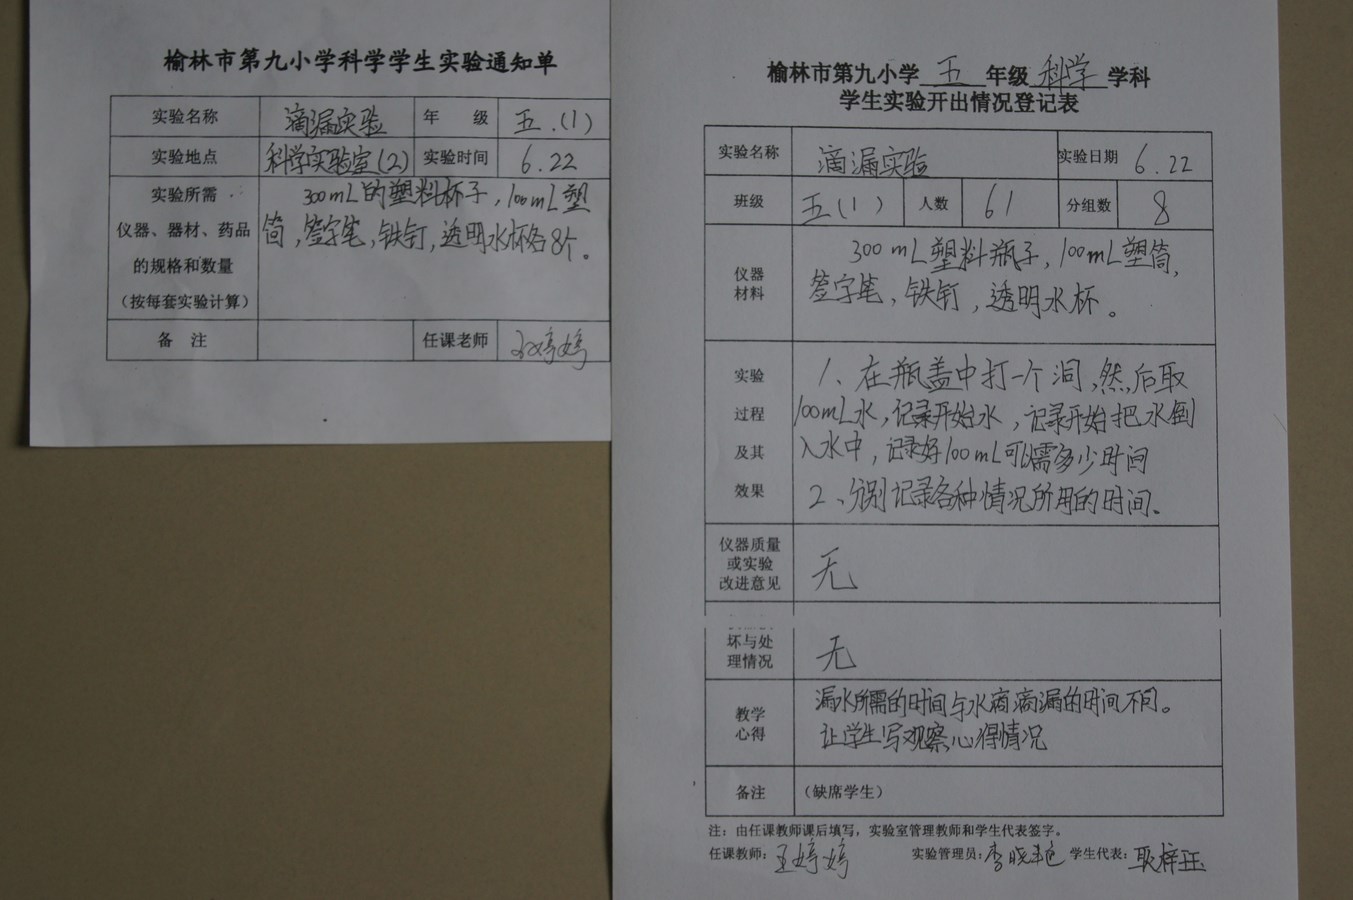 榆林市第九小学科学学生实验通知单
实验名称 滴漏实验 年 级 五.(1)
实验地点 科学实验室(2) 实验时间 6.22
实验所需
仪器、器材、药品
的规格和数量
（按每套实验计算）
300mL的塑料杯子，100mL塑
筒，签字笔，铁钉，透明水杯各8个。
备 注 任课老师 王婷婷
榆林市第九小学 五 年级 科学 学科
学生实验开出情况登记表
实验名称 滴漏实验 实验日期 6.22
班级 五(1) 人数 61 分组数 8
仪器
材料
300mL塑料瓶子，100mL塑筒，
签字笔，铁钉，透明水杯。
实验
过程
及其
效果
1、在瓶盖中打一个洞，然后取
100mL水，记录开始水，记录开始把水倒
入水中，记录好100mL可以需多少时间
2、分别记录各种情况所用的时间。
仪器质量
或实验
改进意见
无
坏与处
理情况
无
教学
心得
漏水所需的时间与水滴滴漏的时间不同。
让学生写观察心得情况
备注 （缺席学生）
注：由任课教师课后填写，实验室管理教师和学生代表签字。
任课教师：王婷婷 实验管理员：李晓艳 学生代表：耿梓珏